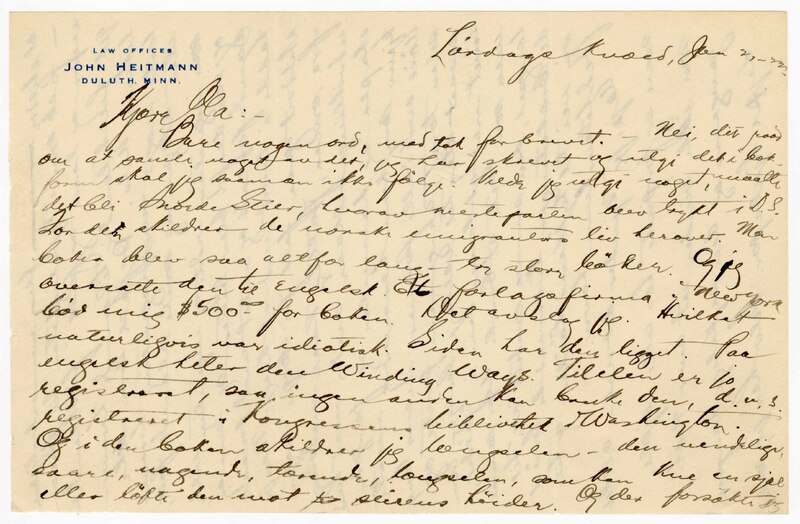 LAW OFFICES
JOHN HEITMANN
DULUTH, MINN.
Lørdags kvæld, Jan
Kjære Ola:-
Bare nogen ord, med tak for brevet. - Nei, det raad
om at samle noget av det, jeg har skrevet og utgi det i bok
form skal jeg saamen ikke følge. Vilde jeg utgi noget, maatte
det bli Snorde Stier, hvorav meste parten blev trykt i D.S.
For den skildrer de norske emigranters liv herover. Men
boken blev saa altfor lang - to store bøker. Og jeg
oversatte den til engelsk. Et forlagsfirma i New York
bød mig $500 for boken. Det avslog jeg. Hvilket
naturligvis var idiotisk. Siden har den ligget. Paa
engelsk heter den Winding Ways. Titelen er jo
registreret, saa ingen anden kan bruke den, d.v.s.
registreret i Kongressens bibliotek i Washington.
Og i den boken skildrer jeg længselen - den uendelige,
saare, nagende, tærende, længselen, som kan kue en sjæl
eller løfte den mot høider. Og der forsøkte jeg